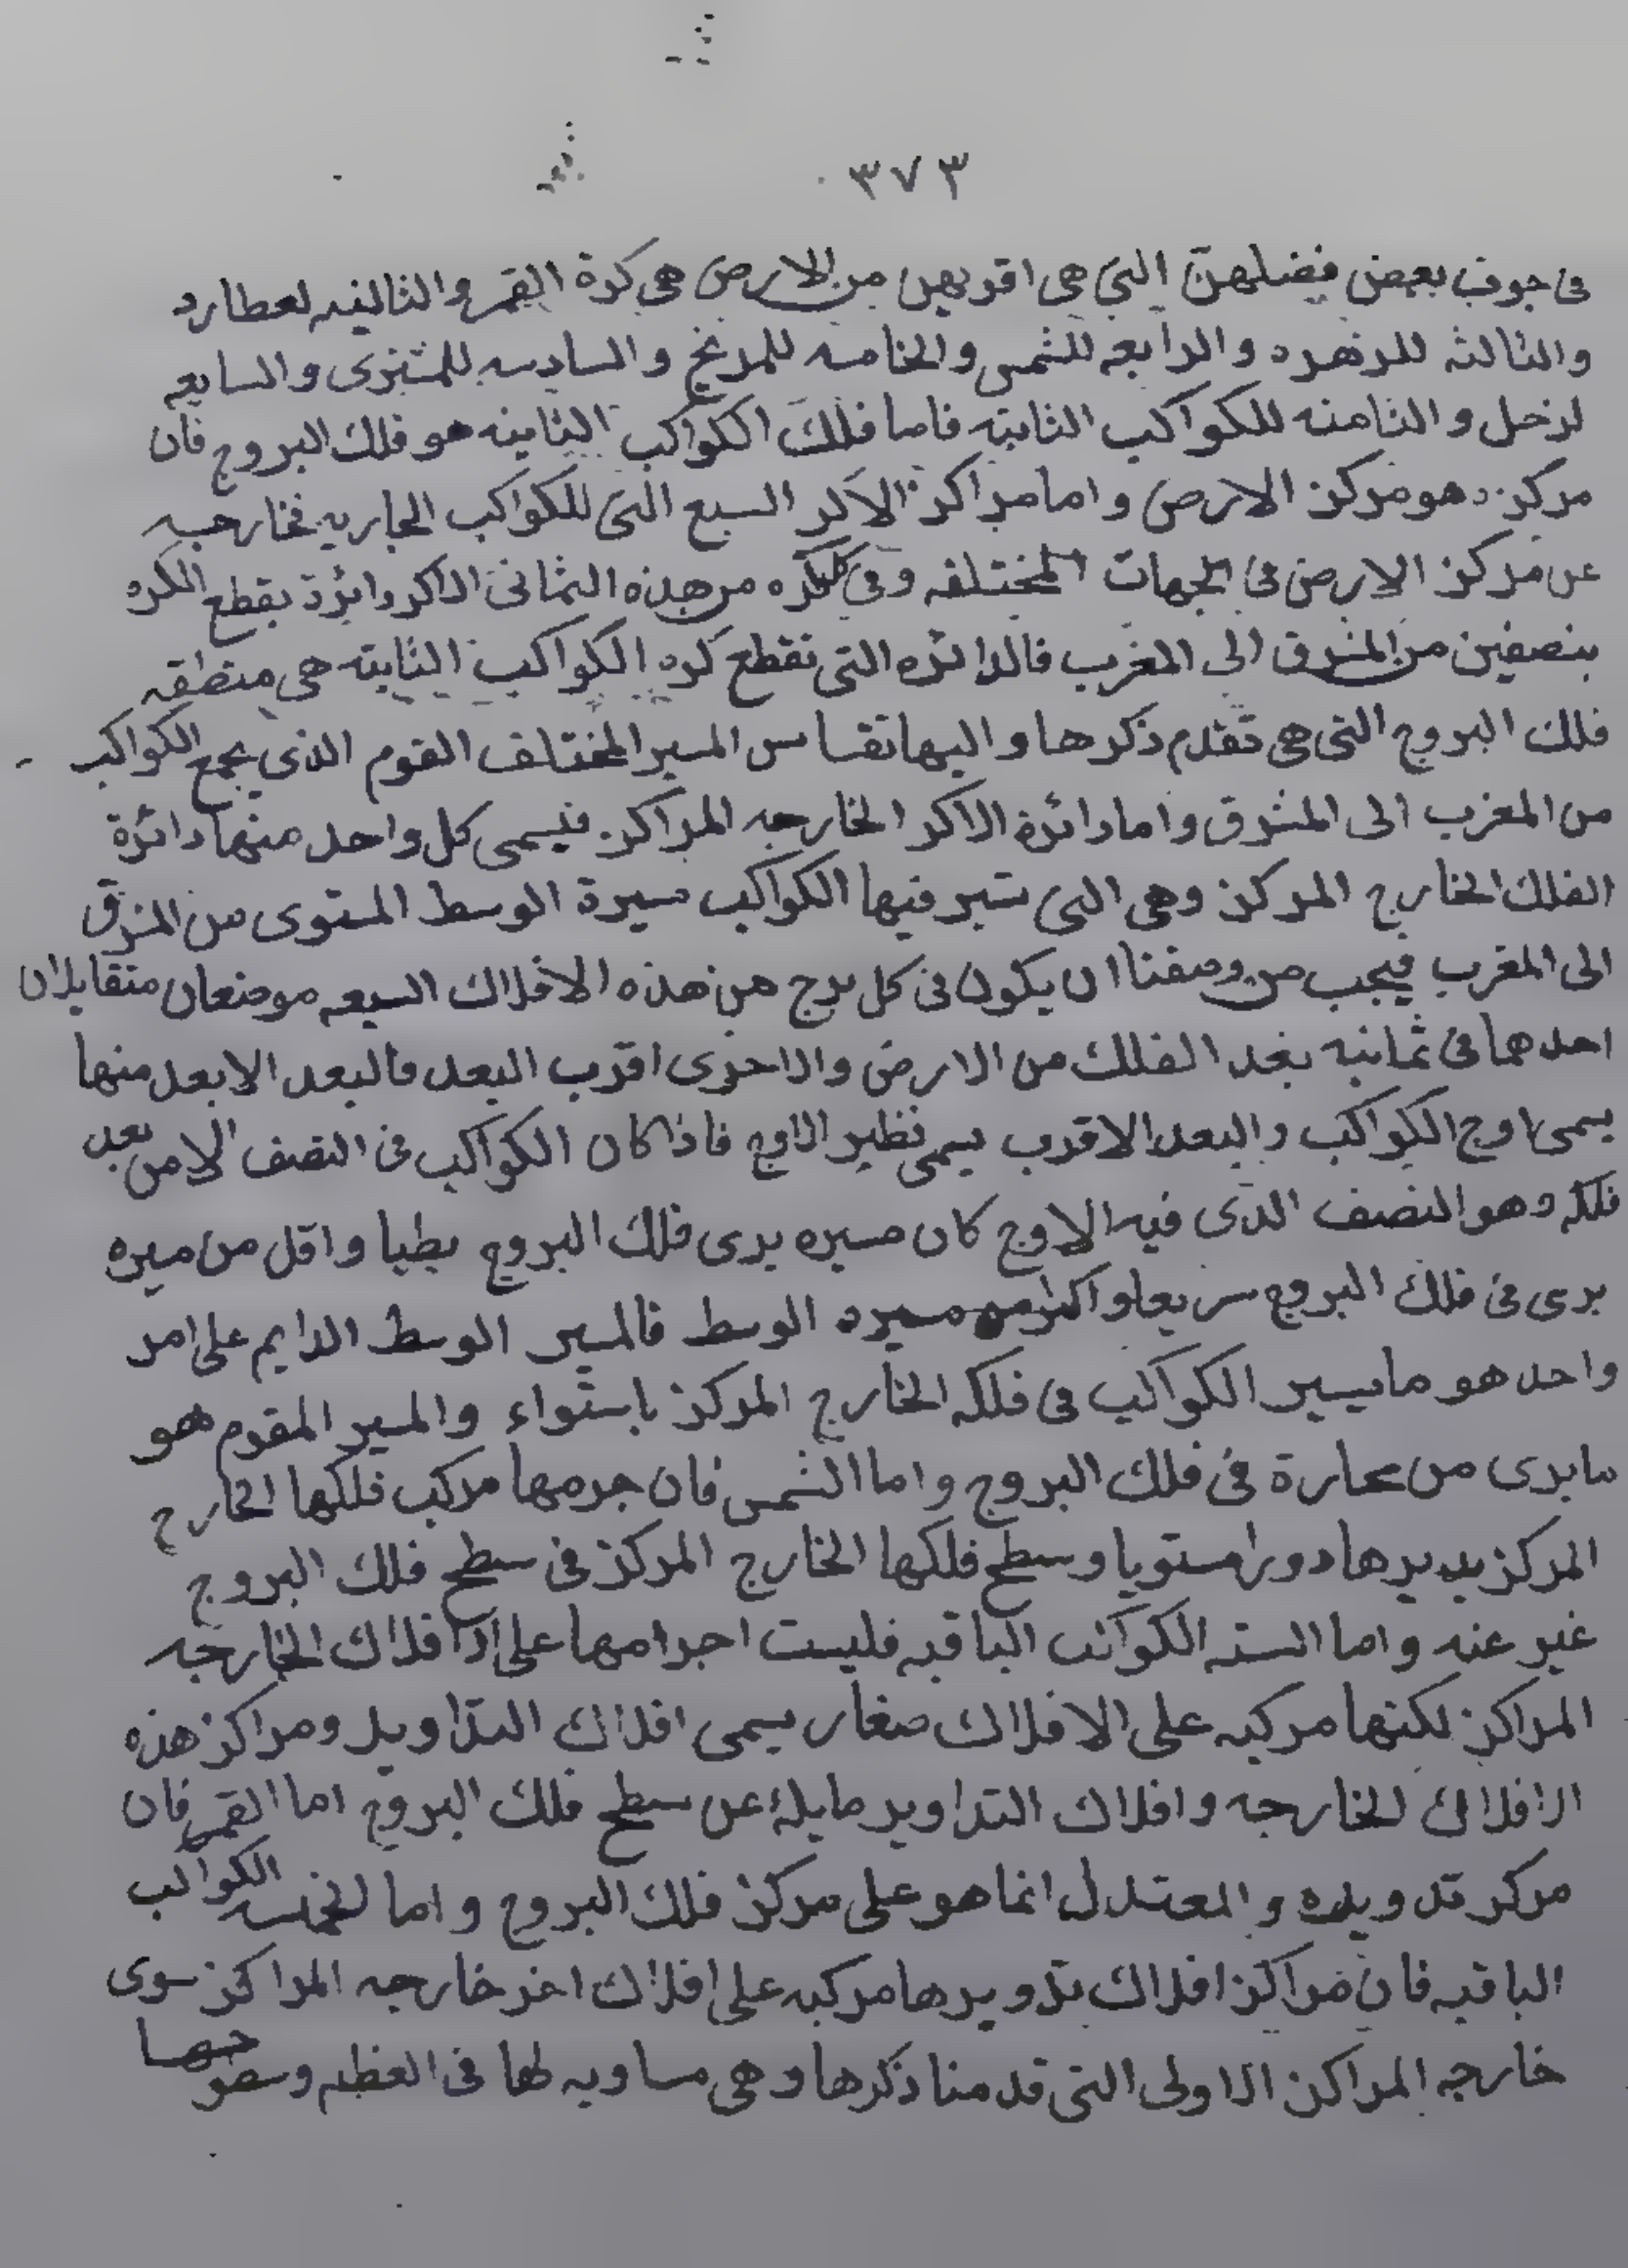 ٣٧٣
فى جوف بعض فضلهن التى هى اقربهن من الارض هى كرة القمر والثانيه لعطارد
والثالثه للزهره والرابعه للشمس والخامسه للمريخ والسادسه للمشترى والسابعه
لزحل والثامنه للكواكب الثابته فاما فلك الكواكب الثابته هو فلك البروج فان
مركزه هو مركز الارض واما مراكز الاكر السبع التى للكواكب الجاريه فخارجه
عن مركز الارض فى الجهات المختلفه وفى كل كره من هذه الثمانى الاكر دائرة يقطع الكره
بنصفين من المشرق الى المغرب فالدائره التى تقطع كره الكواكب الثابته هى منطقه
فلك البروج التى هى تقدم ذكرها واليها تقاس المسير المختلف القوم الذى يجمع الكواكب
من المغرب الى المشرق واما دائرة الاكر الخارجه المراكز فيسمى كل واحد منها دائرة
الفلك الخارج المركز وهى التى تسير فيها الكواكب مسيرة الوسط المستوى من المشرق
الى المغرب فيجب من وصفنا ان يكون فى كل برج من هذه الافلاك السبعه موضعان متقابلان
احدهما فى ثمانيه بعد الفلك من الارض والاخرى اقرب البعد فالبعد الابعد منها
يسمى اوج الكواكب والبعد الاقرب يسمى نظير الاوج فاذا كان الكواكب فى النصف الابعد من
فلكه وهو النصف الذى فيه الاوج كان مسيره يرى فلك البروج بطيا واقل من مسيره
يرى فى فلك البروج سريعا واكثر من مسيره الوسط فالمسير الوسط الدايم على امر
واحد هو ما يسير الكواكب فى فلكه الخارج المركز باستواء والمسير المقوم هو
ما يرى من مجارة فى فلك البروج واما الشمس فان جرمها مركب فلكها الخارج
المركز يديرها دورا مستويا وسطح فلكها الخارج المركز فى سطح فلك البروج
غير عنه واما السته الكواكب الباقيه فليست اجرامها على الافلاك الخارجه
المراكز لكنها مركبه على الافلاك صغار يسمى افلاك التداوير ومراكز هذه
الافلاك الخارجه وافلاك التداوير مايلة عن سطح فلك البروج اما القمر فان
مركز تدويره والمعتدل انما هو على مركز فلك البروج واما الخمسه الكواكب
الباقيه فان مراكز افلاك تدويرها مركبه على افلاك اخر خارجه المراكز سوى
خارجه المراكز الاولى التى قدمنا ذكرها وهى مساويه لها فى العظم